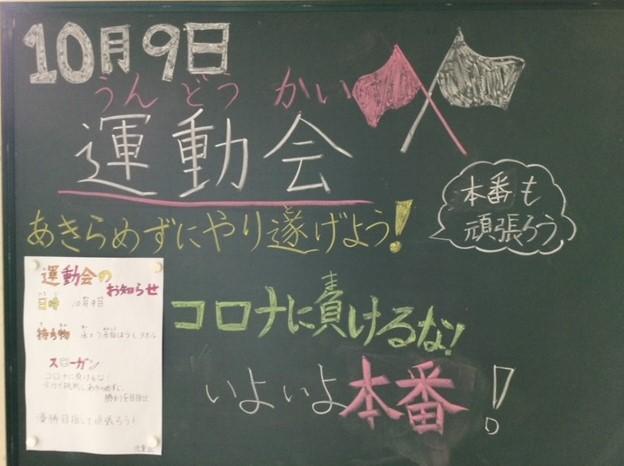 10月9日
うんどうかい
運動会
あきらめずにやり遂げよう!
本番も
頑張ろう
コロナに負けるな!
いよいよ本番!
運動会の
お知らせ
日時 10月9日
持ち物
スローガン
コロナに負けるな!
勝利を目指せ
優勝目指して頑張ろう!